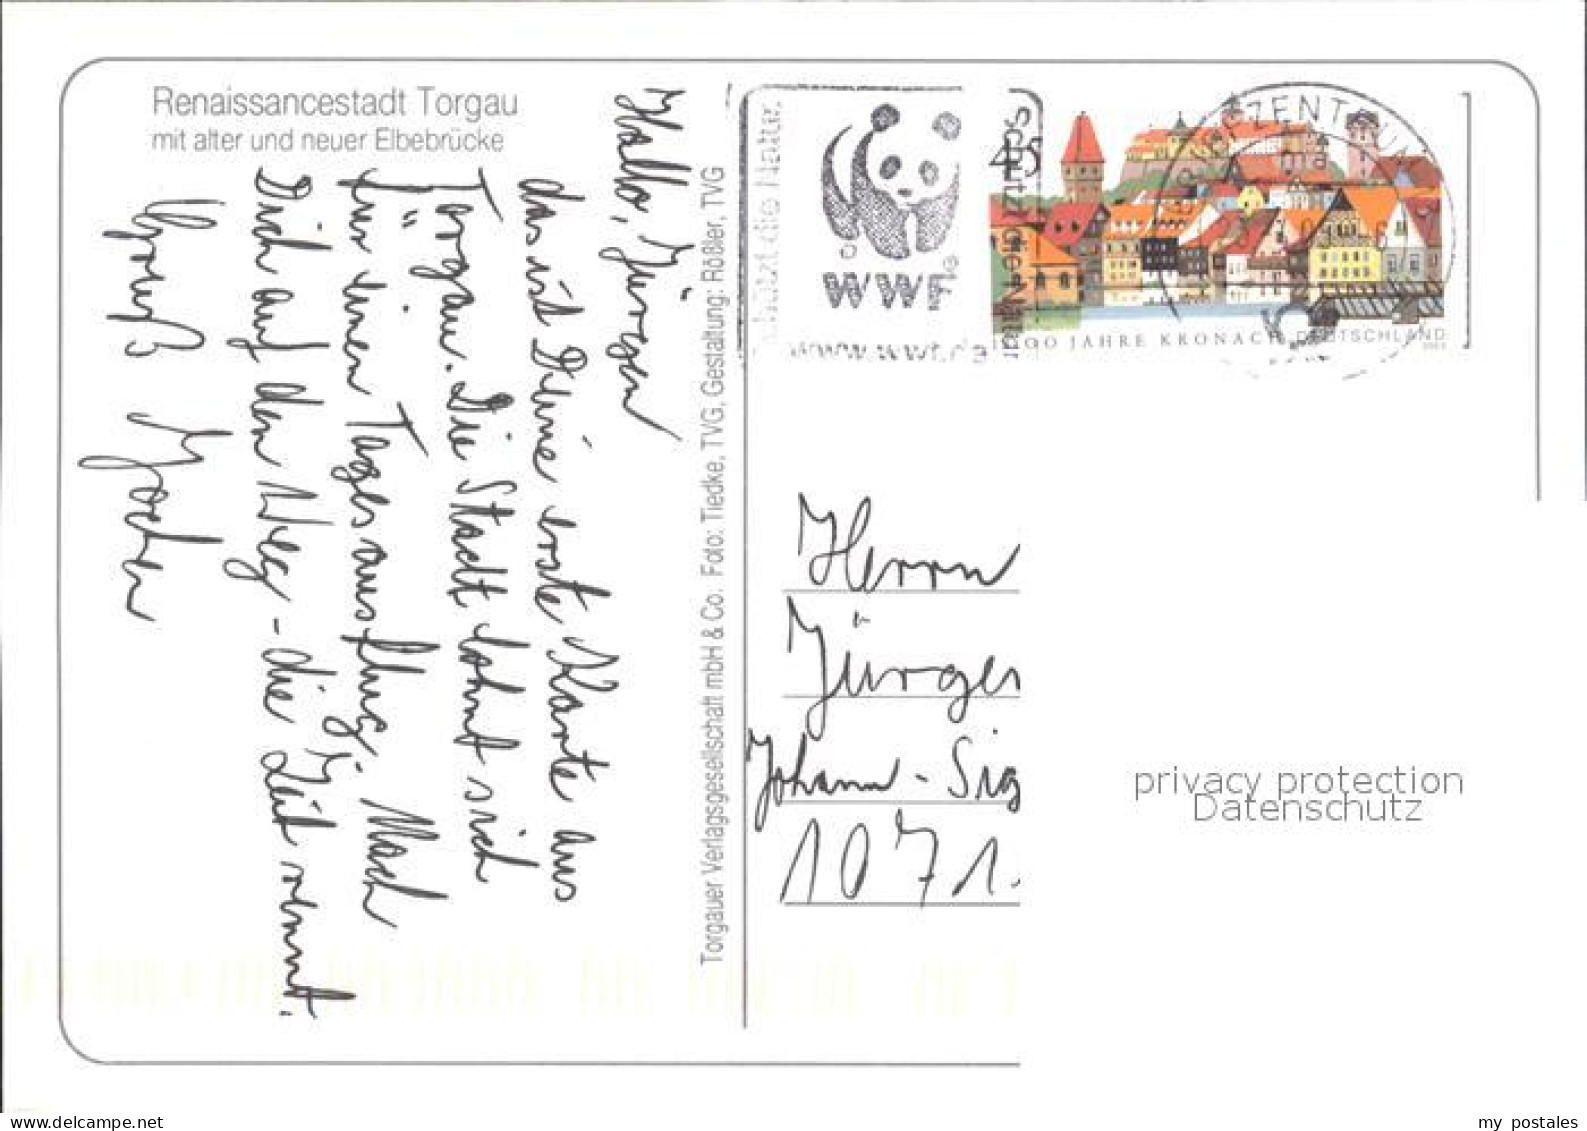 Renaissancestadt Torgau
mit alter und neuer Elbebrücke
Hallo, Jürgen
das ist Deine erste Karte aus
Torgau. Die Stadt lohnt sich
für einen Tagesausflug. Mach
Dich auf den Weg - die Zeit rennt.
Gruß Jochen
Torgauer Verlagsgesellschaft mbH & Co. Foto: Tiedke, TVG, Gestaltung: Rößler, TVG
schützt die Natur
WWF
www.wwf.de
schützt die Natur
45
BRIEFZENTRUM
00 JAHRE KRONACH DEUTSCHLAND
Herrn
Jürgen
Johann-Sig
1071
privacy protection
Datenschutz
www.delcampe.net
my_postales